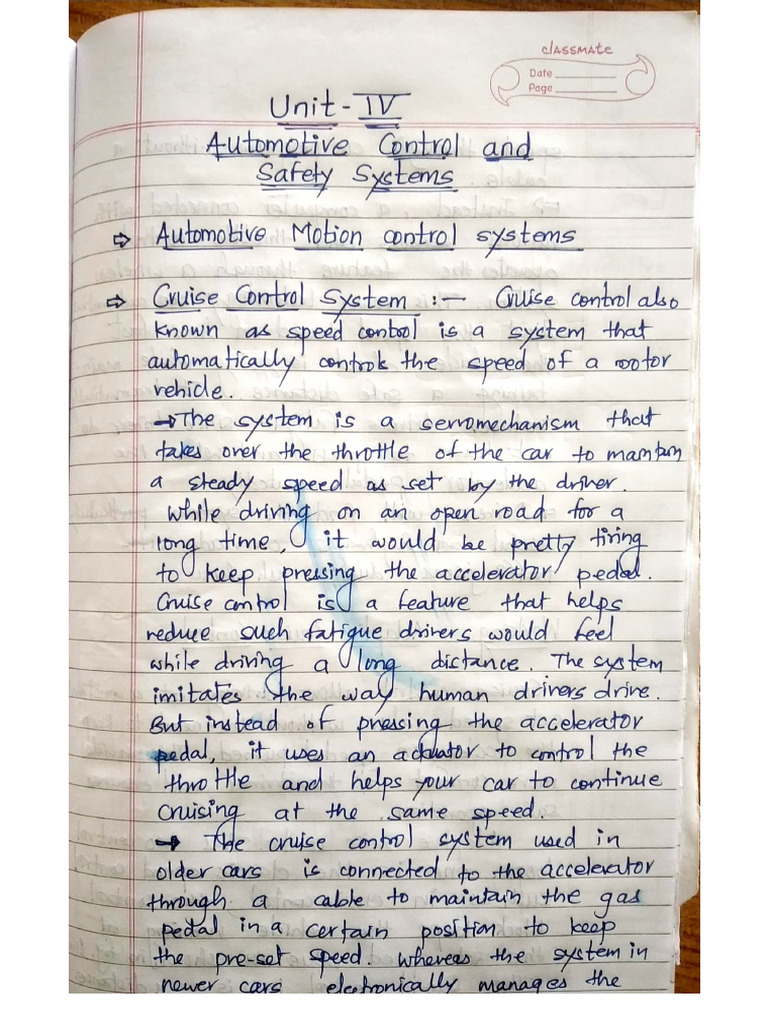 classmate
Date
Page
Unit - IV
Automotive Control and
Safety Systems
⇒ Automotive Motion control systems
⇒ Cruise Control System :- Cruise control also
known as speed control is a system that
automatically controls the speed of a motor
vehicle.
→ The system is a servomechanism that
takes over the throttle of the car to maintain
a steady speed as set by the driver.
while driving on an open road for a
long time, it would be pretty tiring
to keep pressing the accelerator pedal.
Cruise control is a feature that helps
reduce such fatigue drivers would feel
while driving a long distance. The system
imitates the way human drivers drive.
But instead of pressing the accelerator
pedal, it uses an actuator to control the
throttle and helps your car to continue
cruising at the same speed.
→ The cruise control system used in
older cars is connected to the accelerator
through a cable to maintain the gas
pedal in a certain position to keep
the pre-set speed. whereas the system in
newer cars electronically manages the